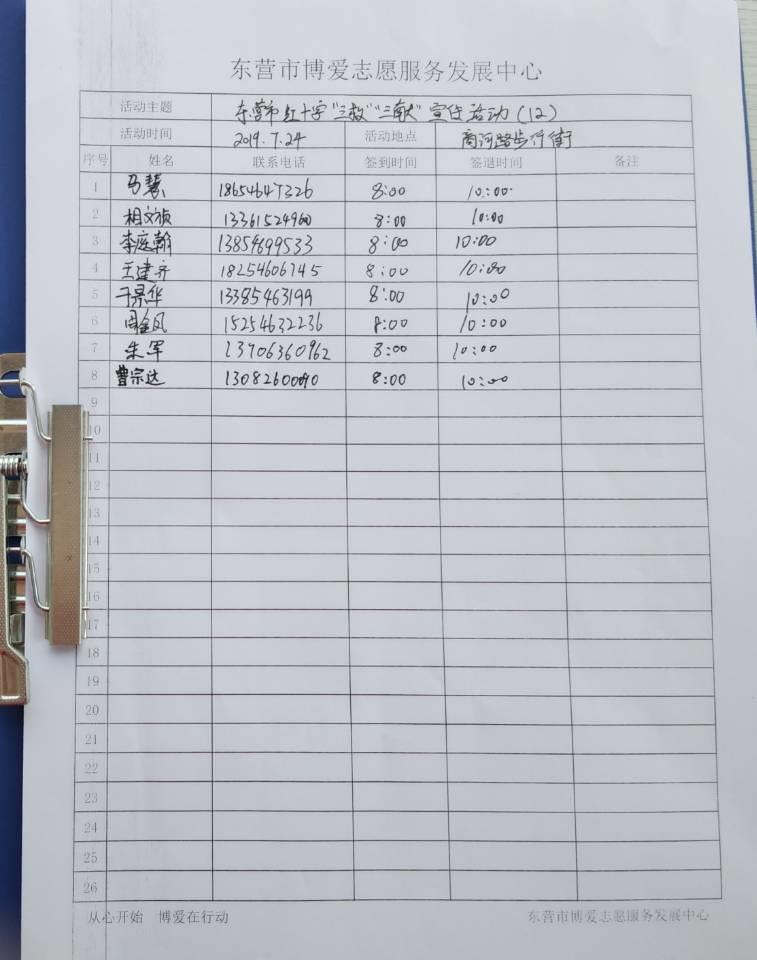 东营市博爱志愿服务发展中心
活动主题 东营市红十字"三救""三献"宣传活动(12)
活动时间 2019.7.24 活动地点 商河路步行街
序号 姓名 联系电话 签到时间 签退时间 备注
1 马慧 18654647326 8:00 10:00
2 相文祯 13361524960 8:00 10:00
3 李庭翰 13854699533 8:00 10:00
4 王建齐 18254606745 8:00 10:00
5 于景华 13385463199 8:00 10:00
6 周金凤 15254632236 8:00 10:00
7 朱军 13706360962 8:00 10:00
8 曹宗达 13082600090 8:00 10:00
9
10
11
12
13
14
15
16
17
18
19
20
21
22
23
24
25
26
从心开始 博爱在行动 东营市博爱志愿服务发展中心